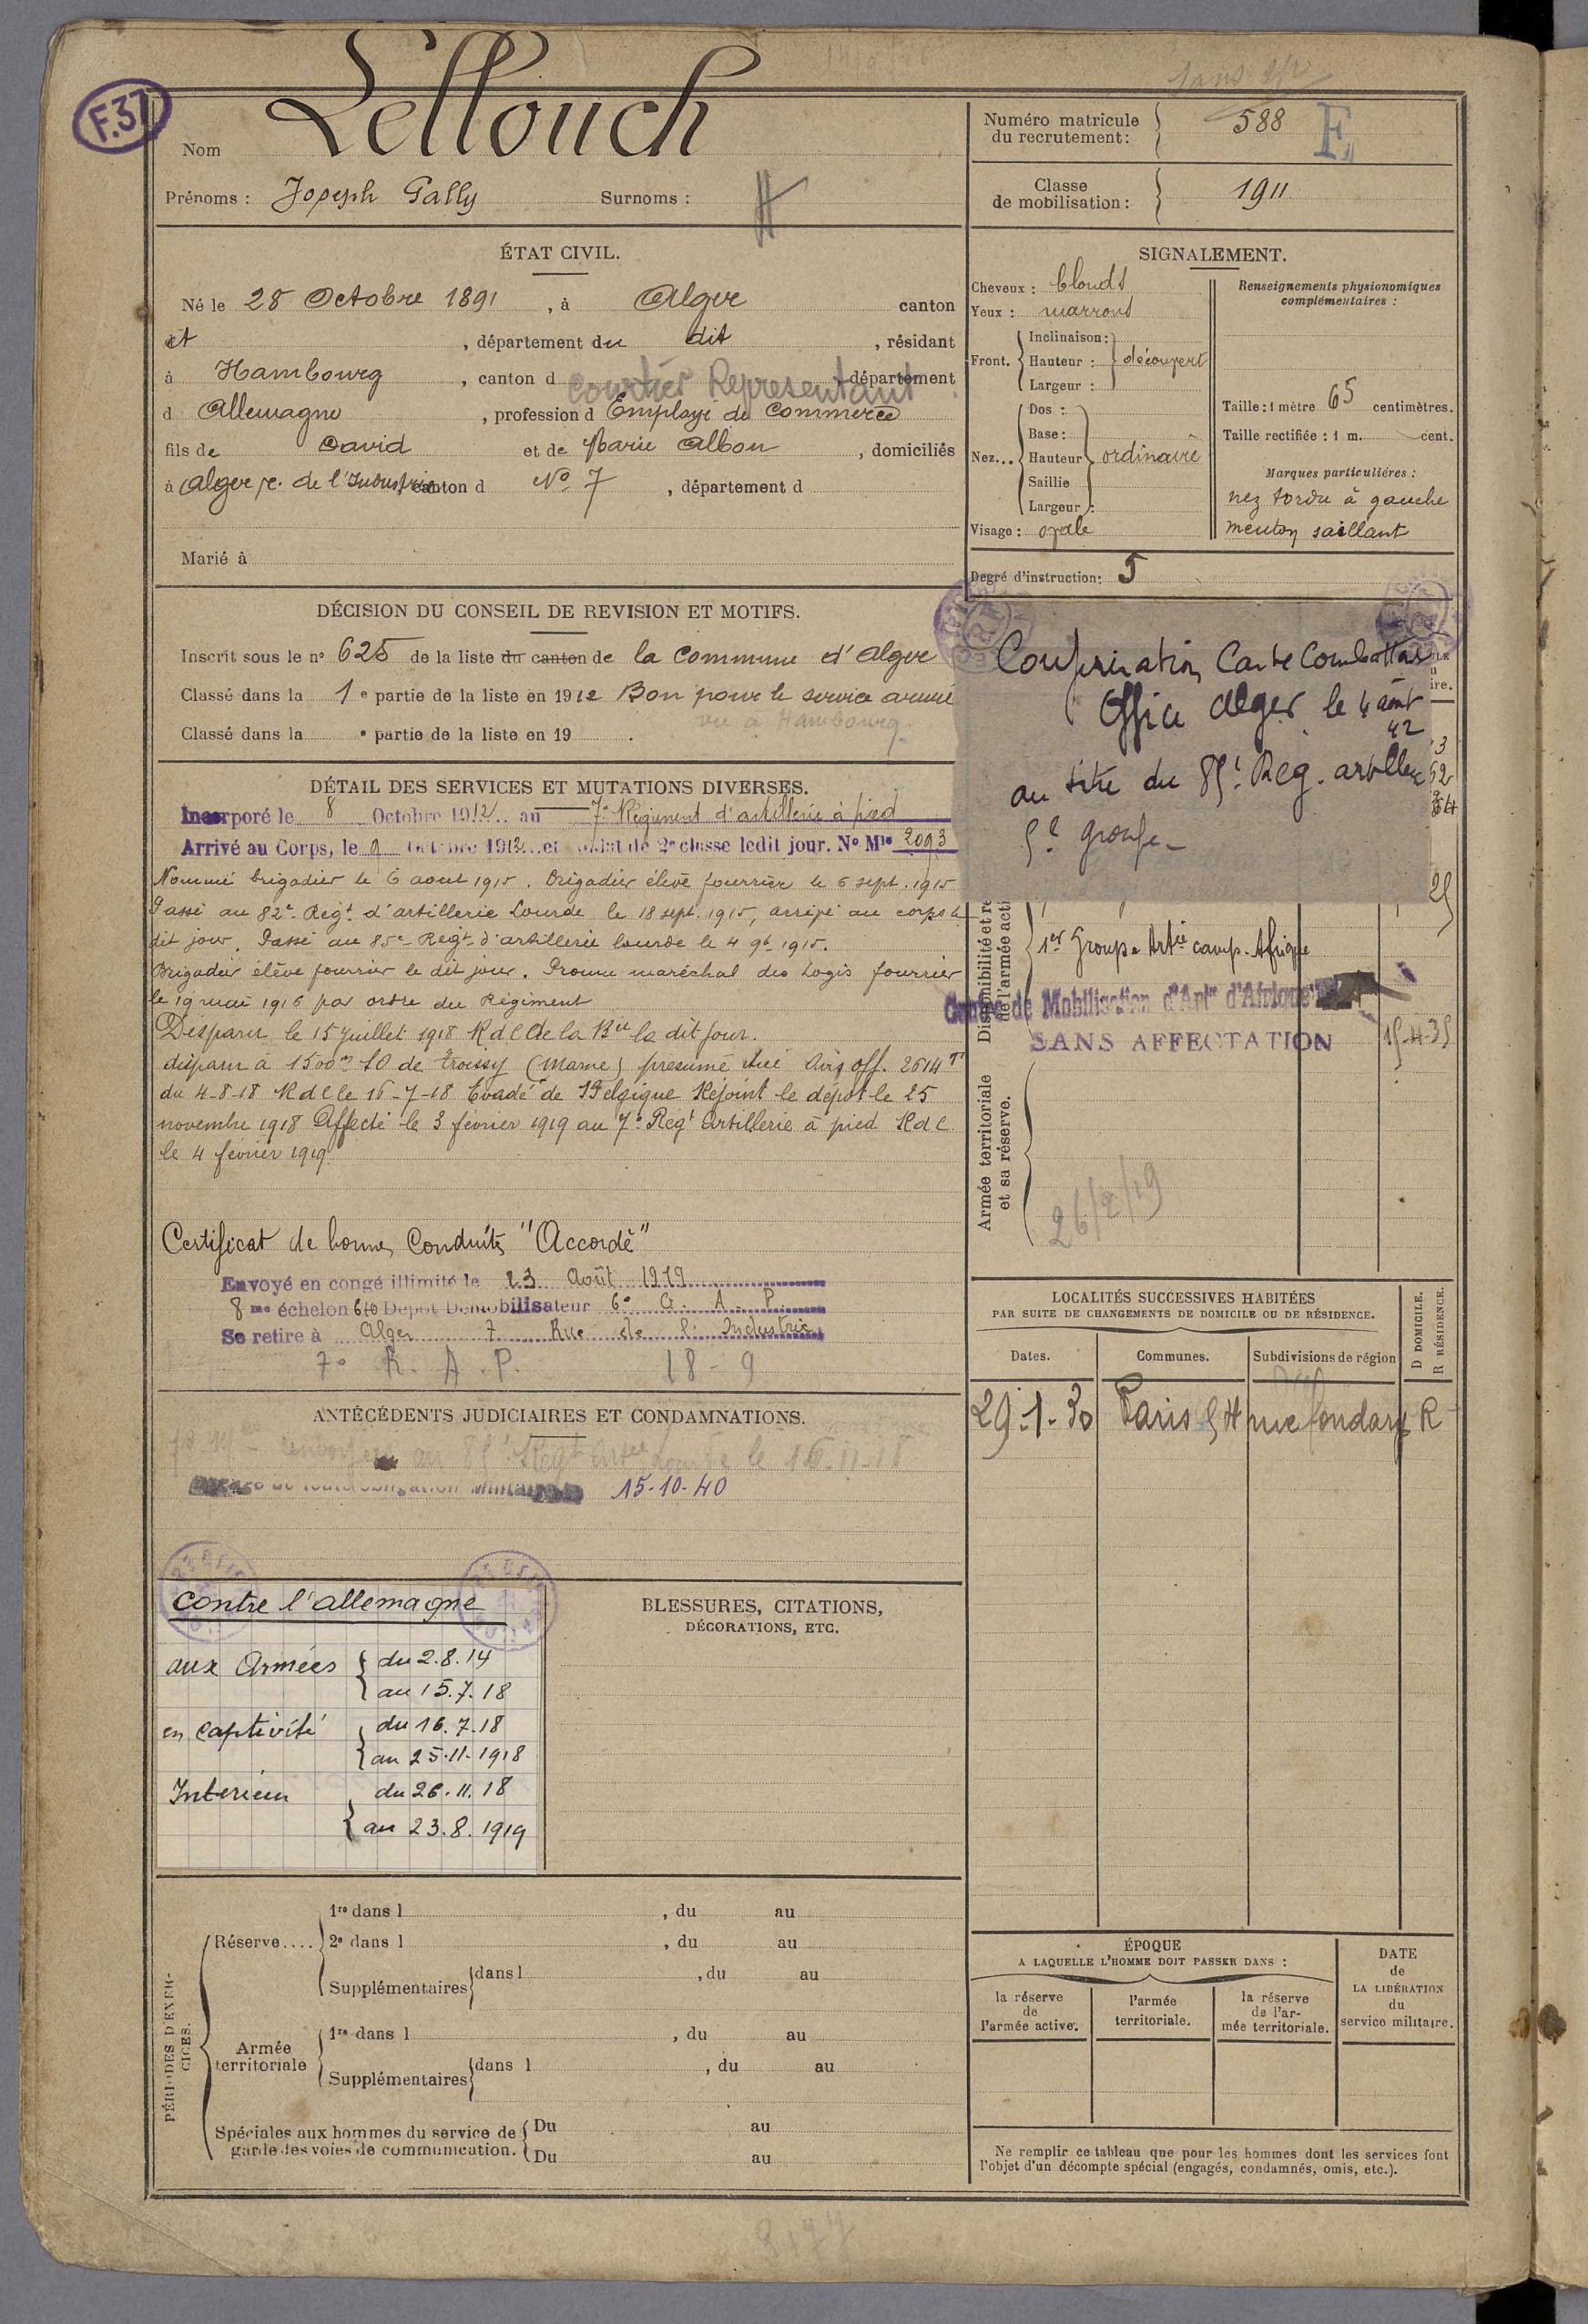 F.37
Nom Lellouch
Prénoms : Joseph Gally Surnoms :
ÉTAT CIVIL.
Né le 28 Octobre 1891, à Alger canton
dt, département du dit, résidant
à Hambourg, canton d département
Courtier Representant
d Allemagne, profession d Employé de Commerce
fils de David et de Marie Albou, domiciliés
à Alger r. de l'Industrie canton d No 7, département d
Marié à
DÉCISION DU CONSEIL DE REVISION ET MOTIFS.
Inscrit sous le no 625 de la liste du canton de la Commune d'Alger
Classé dans la 1e partie de la liste en 1912 Bon pour le service armé
vu à Hambourg.
Classé dans la e partie de la liste en 19 .
DÉTAIL DES SERVICES ET MUTATIONS DIVERSES.
Incorporé le 8 Octobre 1912 au 7e Régiment d'artillerie à pied
Arrivé au Corps, le 9 Octobre 1912 et soldat de 2e classe ledit jour. No Mle 2093
Nommé brigadier le 6 aout 1915. Brigadier élève fourrier le 6 sept. 1915
Passé au 82e Regt d'artillerie Lourde le 18 sept. 1915, arrivé au corps le
dit jour. Passé au 85e Regt d'artillerie lourde le 4 9b 1915.
Brigadier élève fourrier le dit jour. Promu maréchal des Logis fourrier
le 19 mai 1916 par ordre du Régiment
Disparu le 15 juillet 1918 R d C de la Bie le dit jour.
disparu à 1500m SO de Troissy (Marne) présumé tué Avis off. 2614 T
du 4-8-18 R d C le 16-7-18 Evadé de Belgique Rejoint le dépôt le 25
novembre 1918 Affecté le 3 février 1919 au 7e Regt Artillerie à pied R d C
le 4 février 1919
Certificat de bonne Conduite "Accordé"
Envoyé en congé illimité le 23 Août 1919
8me échelon 640 Dépôt Démobilisateur 6e G. A. P.
Se retire à Alger 7 Rue de l'Industrie
7e R. A. P. 18-9
ANTÉCÉDENTS JUDICIAIRES ET CONDAMNATIONS.
au 85e Regt Artie Lourde le 16-11-18
de toute obligation Militaire 15-10-40
Contre l'allemagne
aux Armées { du 2.8.14
au 15.7.18
en captivité { du 16.7.18
au 25.11.1918
Interieur { du 26.11.18
au 23.8.1919
BLESSURES, CITATIONS,
DÉCORATIONS, ETC.
PÉRIODES D'EXERCICES.
Réserve....
1re dans l , du au
2e dans l , du au
Supplémentaires dans l , du au
Armée territoriale
1re dans l , du au
Supplémentaires dans l , du au
Spéciales aux hommes du service de garde des voies de communication.
Du au
Du au
Numéro matricule du recrutement : 588 E
Classe de mobilisation : 1911
SIGNALEMENT.
Cheveux : blonds
Yeux : marrons
Front. Inclinaison : Hauteur : Largeur : découvert
Nez... Dos : Base : Hauteur Saillie Largeur : ordinaire
Visage : ovale
Renseignements physionomiques complémentaires :
Taille : 1 mètre 65 centimètres.
Taille rectifiée : 1 m. cent.
Marques particulières :
nez tordu à gauche
menton saillant
Degré d'instruction : 5
Confirmation Carte Combattant
Office Alger le 4 aout
42
au titre du 85e Reg. artillerie
5e groupe
Disponibilité et ré
de l'armée acti
1er Groupe Artie camp. Afrique
Centre de Mobilisation d'Artie d'Afrique
SANS AFFECTATION
15-4-35
Armée territoriale
et sa réserve.
26/2/19
LOCALITÉS SUCCESSIVES HABITÉES
PAR SUITE DE CHANGEMENTS DE DOMICILE OU DE RÉSIDENCE.
D DOMICILE.
R RÉSIDENCE.
Dates. Communes. Subdivisions de région
29-1-30 Paris 54 rue fondary R
ÉPOQUE
A LAQUELLE L'HOMME DOIT PASSER DANS :
la réserve de l'armée active.
l'armée territoriale.
la réserve de l'armée territoriale.
DATE de LA LIBÉRATION du service militaire.
Ne remplir ce tableau que pour les hommes dont les services font
l'objet d'un décompte spécial (engagés, condamnés, omis, etc.).